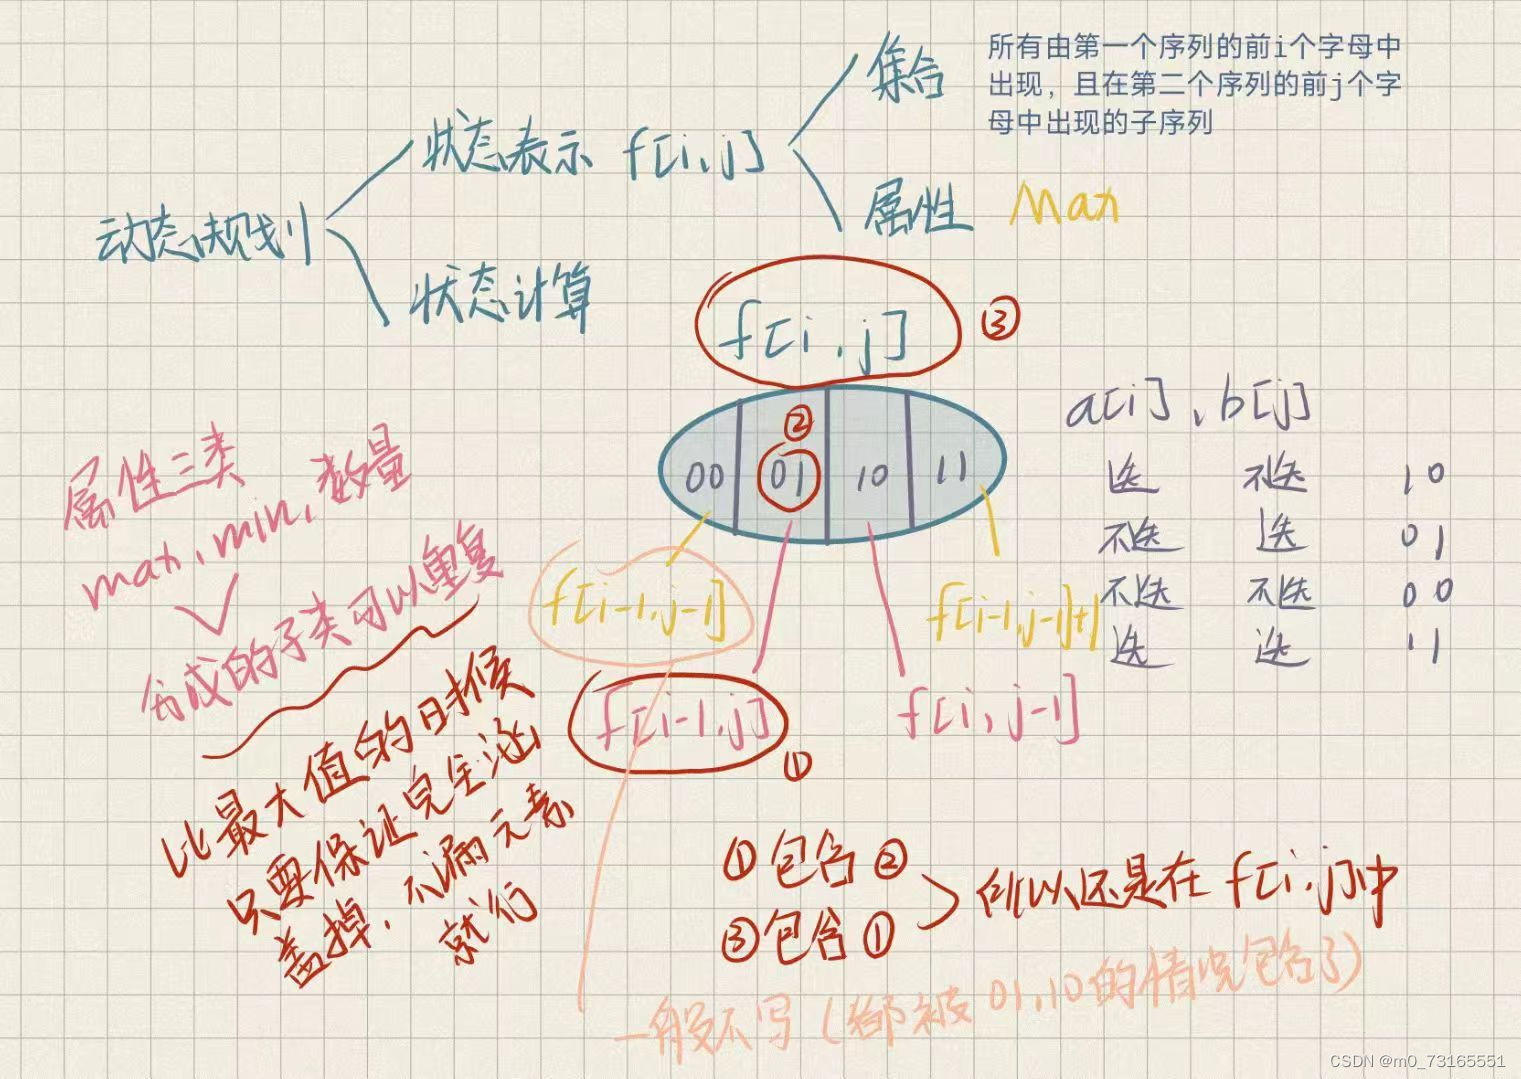 所有由第一个序列的前i个字母中
出现，且在第二个序列的前j个字
母中出现的子序列
集合
状态表示 f[i,j]
属性 Max
动态规划
状态计算
f[i,j] ③
a[i],b[j]
②
00 01 10 11
选 不选 10
不选 选 01
不选 不选 00
选 选 11
属性三类
max,min,数量
分成的子类可以重复
f[i-1,j-1]
f[i-1,j-1]+1
f[i-1,j]
f[i,j-1]
①
比最大值的时候
只要保证完全涵
盖掉,不漏元素
就行
①包含②
③包含①
所以还是在f[i,j]中
一般不写(都被01,10的情况包含了)
CSDN @m0_73165551